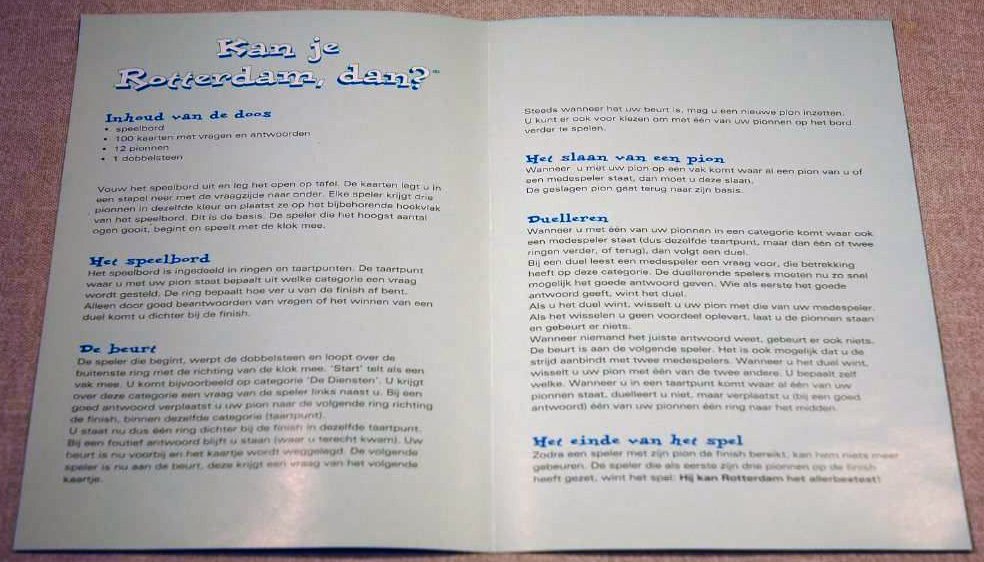 Kan je
Rotterdam, dan?
Inhoud van de doos
• speelbord
• 100 kaarten met vragen en antwoorden
• 12 pionnen
• 1 dobbelsteen
Vouw het speelbord uit en leg het open op tafel. De kaarten legt u in
een stapel neer met de vraagzijde naar onder. Elke speler krijgt drie
pionnen in dezelfde kleur en plaatst ze op het bijbehorende hoekvlak
van het speelbord. Dit is de basis. De speler die het hoogst aantal
ogen gooit, begint en speelt met de klok mee.
Het speelbord
Het speelbord is ingedeeld in ringen en taartpunten. De taartpunt
waar u met uw pion staat bepaalt uit welke categorie een vraag
wordt gesteld. De ring bepaalt hoe ver u van de finish af bent.
Alleen door goed beantwoorden van vragen of het winnen van een
duel komt u dichter bij de finish.
De beurt
De speler die begint, werpt de dobbelsteen en loopt over de
buitenste ring met de richting van de klok mee. 'Start' telt als een
vak mee. U komt bijvoorbeeld op categorie 'De Diensten'. U krijgt
over deze categorie een vraag van de speler links naast u. Bij een
goed antwoord verplaatst u uw pion naar de volgende ring richting
de finish, binnen dezelfde categorie (taartpunt).
U staat nu dus één ring dichter bij de finish in dezelfde taartpunt.
Bij een foutief antwoord blijft u staan (waar u terecht kwam). Uw
beurt is nu voorbij en het kaartje wordt weggelegd. De volgende
speler is nu aan de beurt, deze krijgt een vraag van het volgende
kaartje.
Steeds wanneer het uw beurt is, mag u een nieuwe pion inzetten.
U kunt er ook voor kiezen om met één van uw pionnen op het bord
verder te spelen.
Het slaan van een pion
Wanneer u met uw pion op een vak komt waar al een pion van u of
een medespeler staat, dan moet u deze slaan.
De geslagen pion gaat terug naar zijn basis.
Duelleren
Wanneer u met één van uw pionnen in een categorie komt waar ook
een medespeler staat (dus dezelfde taartpunt, maar dan één of twee
ringen verder, of terug), dan volgt een duel.
Bij een duel leest een medespeler een vraag voor, die betrekking
heeft op deze categorie. De duellerende spelers moeten nu zo snel
mogelijk het goede antwoord geven. Wie als eerste het goede
antwoord geeft, wint het duel.
Als u het duel wint, wisselt u uw pion met die van uw medespeler.
Als het wisselen u geen voordeel oplevert, laat u de pionnen staan
en gebeurt er niets.
Wanneer niemand het juiste antwoord weet, gebeurt er ook niets.
De beurt is aan de volgende speler. Het is ook mogelijk dat u de
strijd aanbindt met twee medespelers. Wanneer u het duel wint,
wisselt u uw pion met één van de twee andere. U bepaalt zelf
welke. Wanneer u in een taartpunt komt waar al één van uw
pionnen staat, duelleert u niet, maar verplaatst u (bij een goed
antwoord) één van uw pionnen één ring naar het midden.
Het einde van het spel
Zodra een speler met zijn pion de finish bereikt, kan hem niets meer
gebeuren. De speler die als eerste zijn drie pionnen op de finish
heeft gezet, wint het spel: Hij kan Rotterdam het allerbeste!